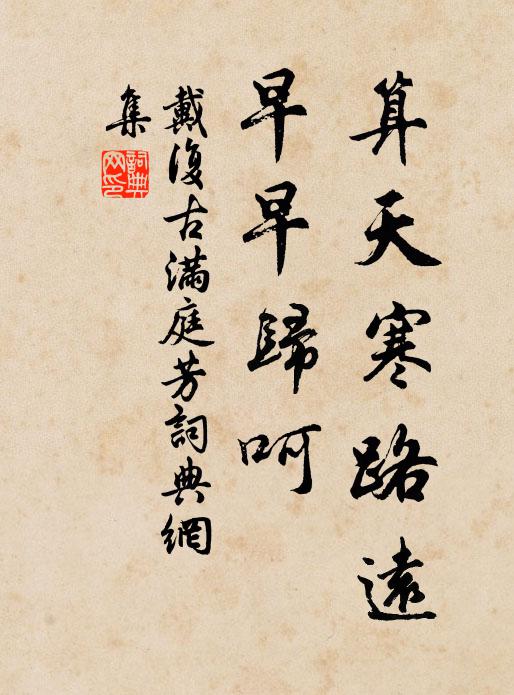 算天寒路遠
早早歸呵
戴復古滿庭芳詞典網
集
詞典
网印